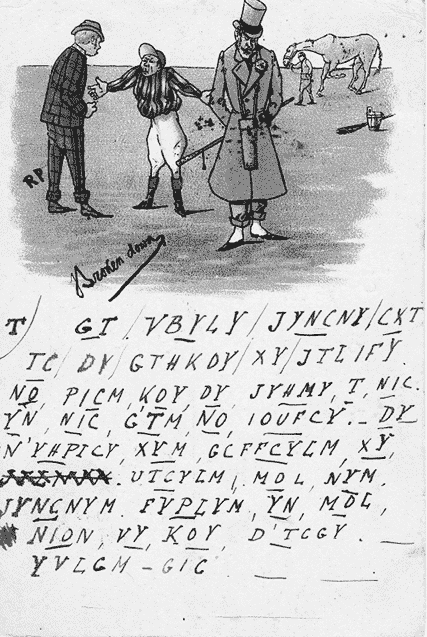 RP
Broken down
T) GT / VBYLY / JYNCNY / CXT
TC / DY / GTHKDY / XY / JTLIFY.
NO, PICM, KOY, DY, JYHMY, T, NIC.
YN, NIC, G'TM, NO, IOUFCY. _ DY
N'YHPICY, XYM, GCFFCYLM, XY,
UTCYLM, MOL, NYM,
JYNCNYM. FYPLYM, YN, MOL,
NION, VY, KOY, D'TCGY. __
YVLGM - GIC. __ __